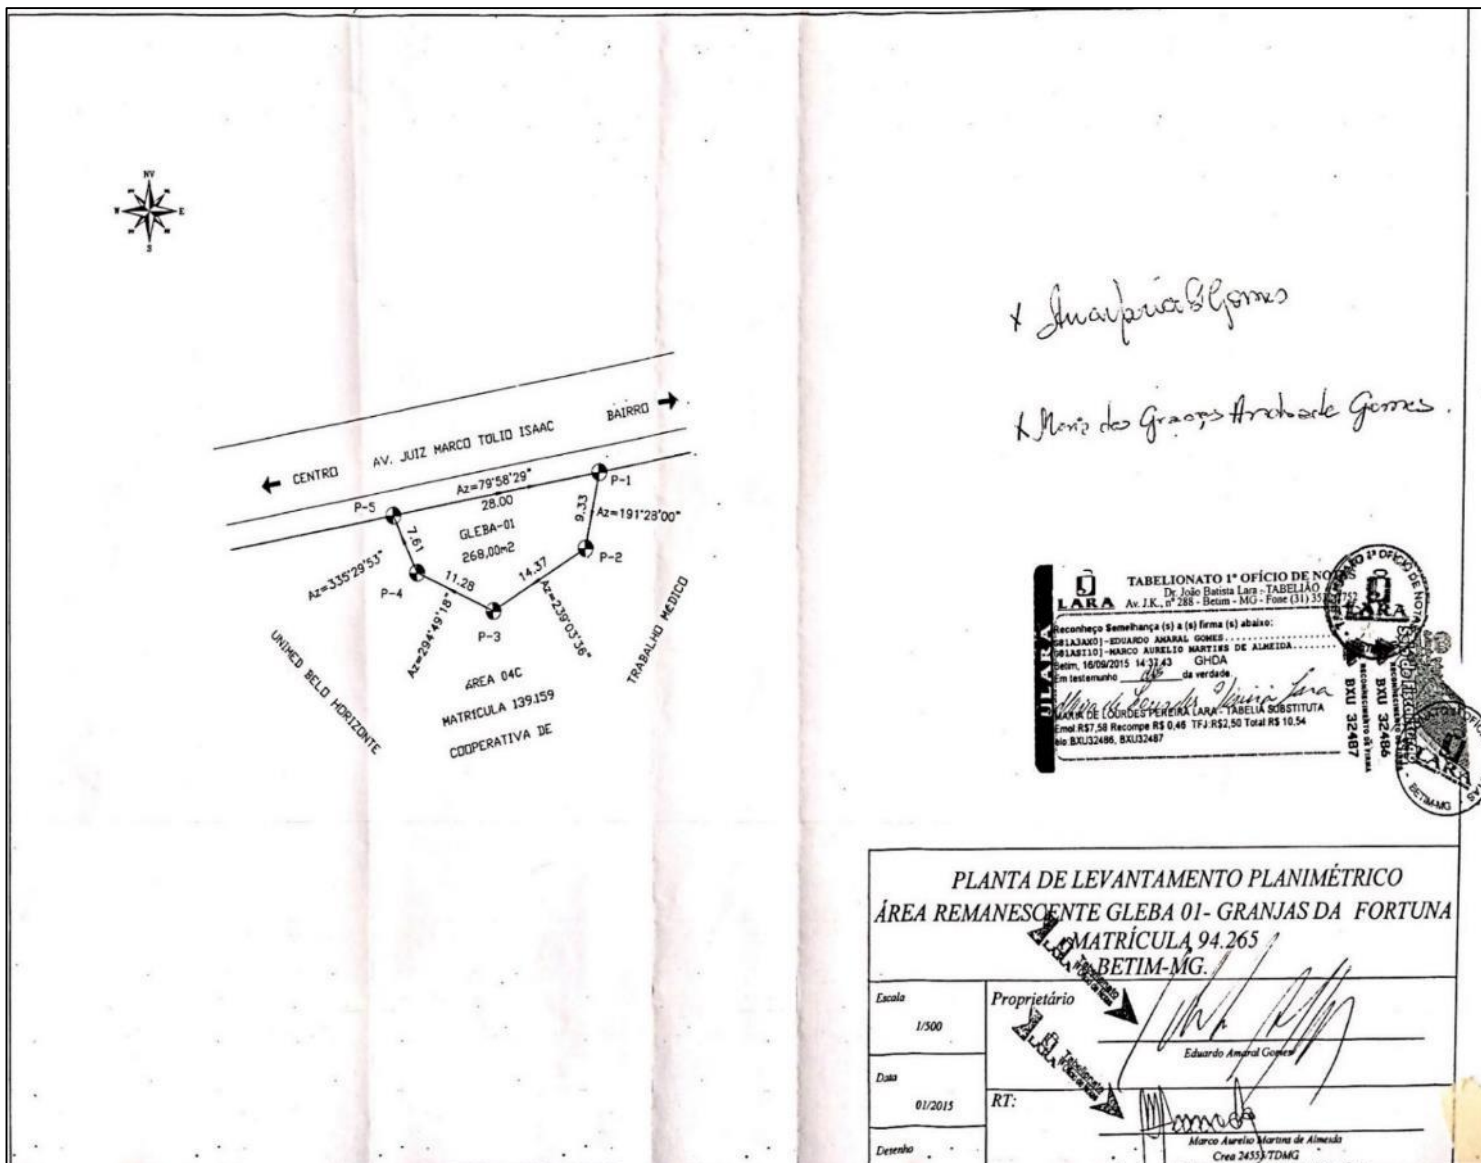 NV
W
E
S
BAIRRO
AV. JUIZ MARCO TOLIO ISAAC
CENTRO
Az=79°58'29"
28.00
P-1
P-5
GLEBA-01
268,00m2
9.33
Az=191°28'00"
P-2
7.61
Az=335°29'53"
P-4
11.28
Az=294°49'18"
14.37
Az=239°03'36"
P-3
UNIMED BELO HORIZONTE
ÁREA 04C
MATRICULA 139.159
COOPERATIVA DE
TRABALHO MÉDICO
Maria das Graças Andrade Gomes.
LARA
TABELIONATO 1º OFÍCIO DE NOTAS
Dr. João Batista Lara - TABELIÃO
Av. J.K., nº 288 - Betim - MG - Fone (31)
Reconheço Semelhança (s) a (s) firma (s) abaixo:
-EDUARDO AMARAL GOMES
-MARCO AURELIO MARTINS DE ALMEIDA
Betim, 16/09/2015 14:37:43 GHDA
Em testemunho da verdade
Maria de Lourdes Pereira Lara
MARIA DE LOURDES PEREIRA LARA - TABELIÃ SUBSTITUTA
Emol:R$7,58 Recompe R$ 0,46 TFJ:R$2,50 Total R$ 10,54
BXU32486, BXU32487
RECONHECIMENTO DE FIRMA
BXU 32487
BXU 32486
LARA
LARA
BETIM-MG
PLANTA DE LEVANTAMENTO PLANIMÉTRICO
ÁREA REMANESCENTE GLEBA 01- GRANJAS DA FORTUNA
MATRÍCULA 94.265
BETIM-MG.
Escala
1/500
Proprietário
Eduardo Amaral Gomes
Data
01/2015
RT:
Marco Aurelio Martins de Almeida
Crea 24553/TDMG
Desenho
LARA
LARA